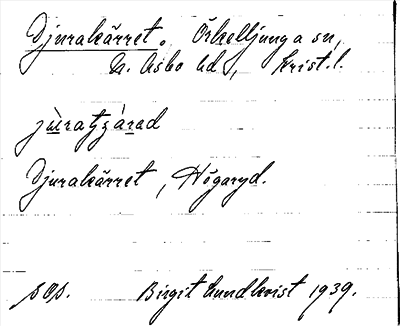 Djurakärret. Örkelljunga sn,
N. Åsbo hd, Krist. l.
Djurakärret, Högaryd.
Birgit Lundkvist 1939.